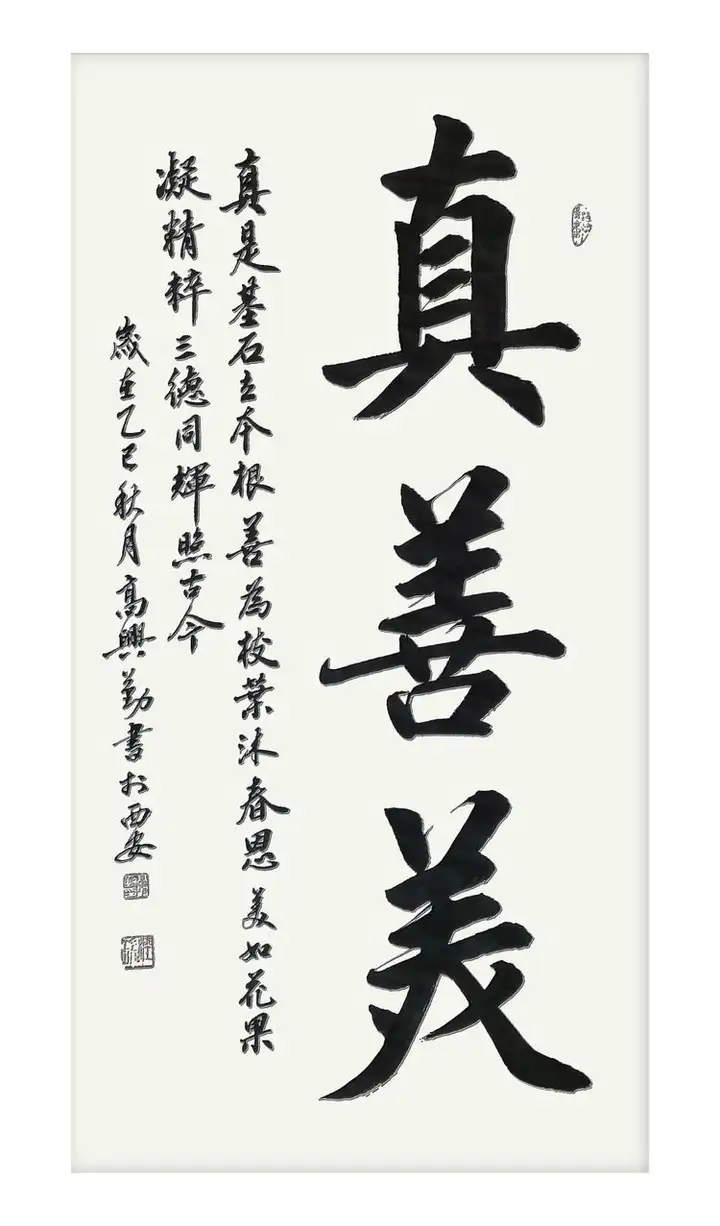 真善美
真是基石立本根善為枝葉沐春恩美如花果
凝精粹三德同輝照古今
歲在乙巳秋月高興勤書於西安